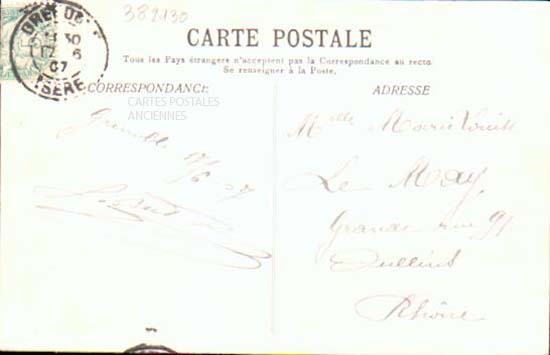 382130
CARTE POSTALE
Tous les Pays étrangers n'acceptent pas la Correspondance au recto.
Se renseigner à la Poste.
CORRESPONDANCE
CARTES POSTALES
ANCIENNES
Grenoble
ADRESSE
Melle Marie Louise
Le May
Grande rue 91
Oullins
Rhône
ISÈRE
07